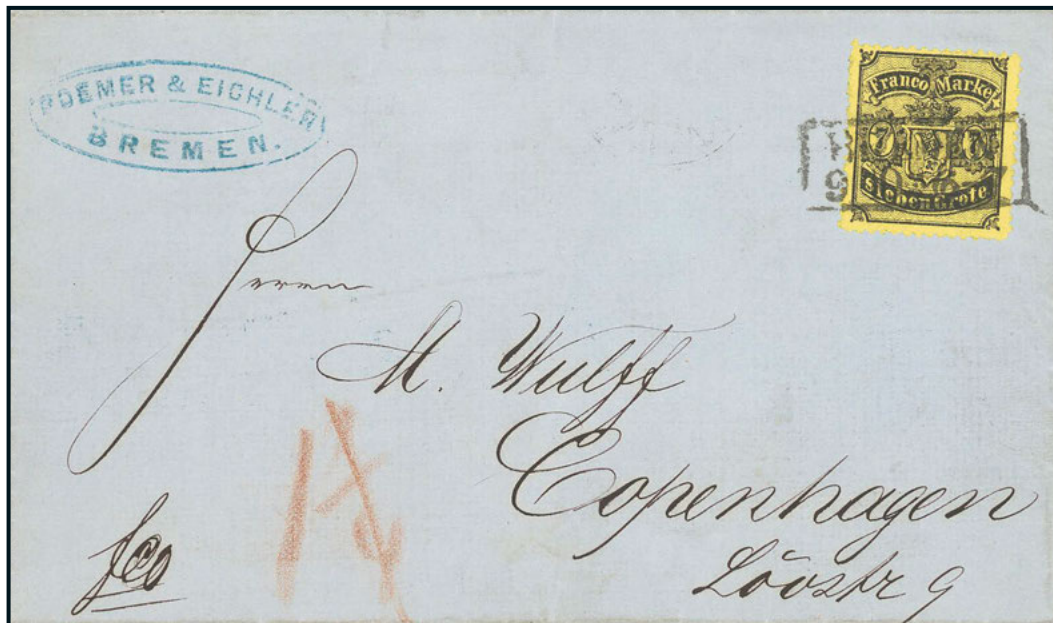 ROEMER & EICHLER
BREMEN.
Franco Marke
7 7
Sieben Grote
Herrn
M. Wulff
Copenhagen
fco